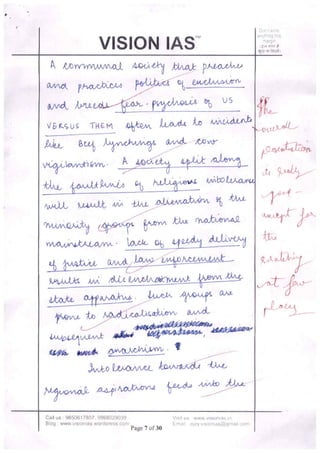 Don't write
anything this
margin
VISION IAS™
A communal society that preaches
and practices politics of exclusion
and breeds fear-psychosis of US
VERSUS THEM often leads to incidents
like Beef lynchings and cow
vigilantism. A society split along
the faultlines of religious intolerance
will result in the alienation of the
minority groups from the national
mainstream. lack of speedy delivery
of justice and law enforcement
results in disenchantment from the
state apparatus. Such groups are
prone to radicalisation and
subsequent
anarchism.
Intolerance towards the
regional aspirations feeds into the
The
overall
presentation
is really
good -
except for
the
at few
places
Call us : 9650617807, 9968029039
Visit us : www.visionias.in
Blog : www.visionias.wordpress.com
Page 7 of 30